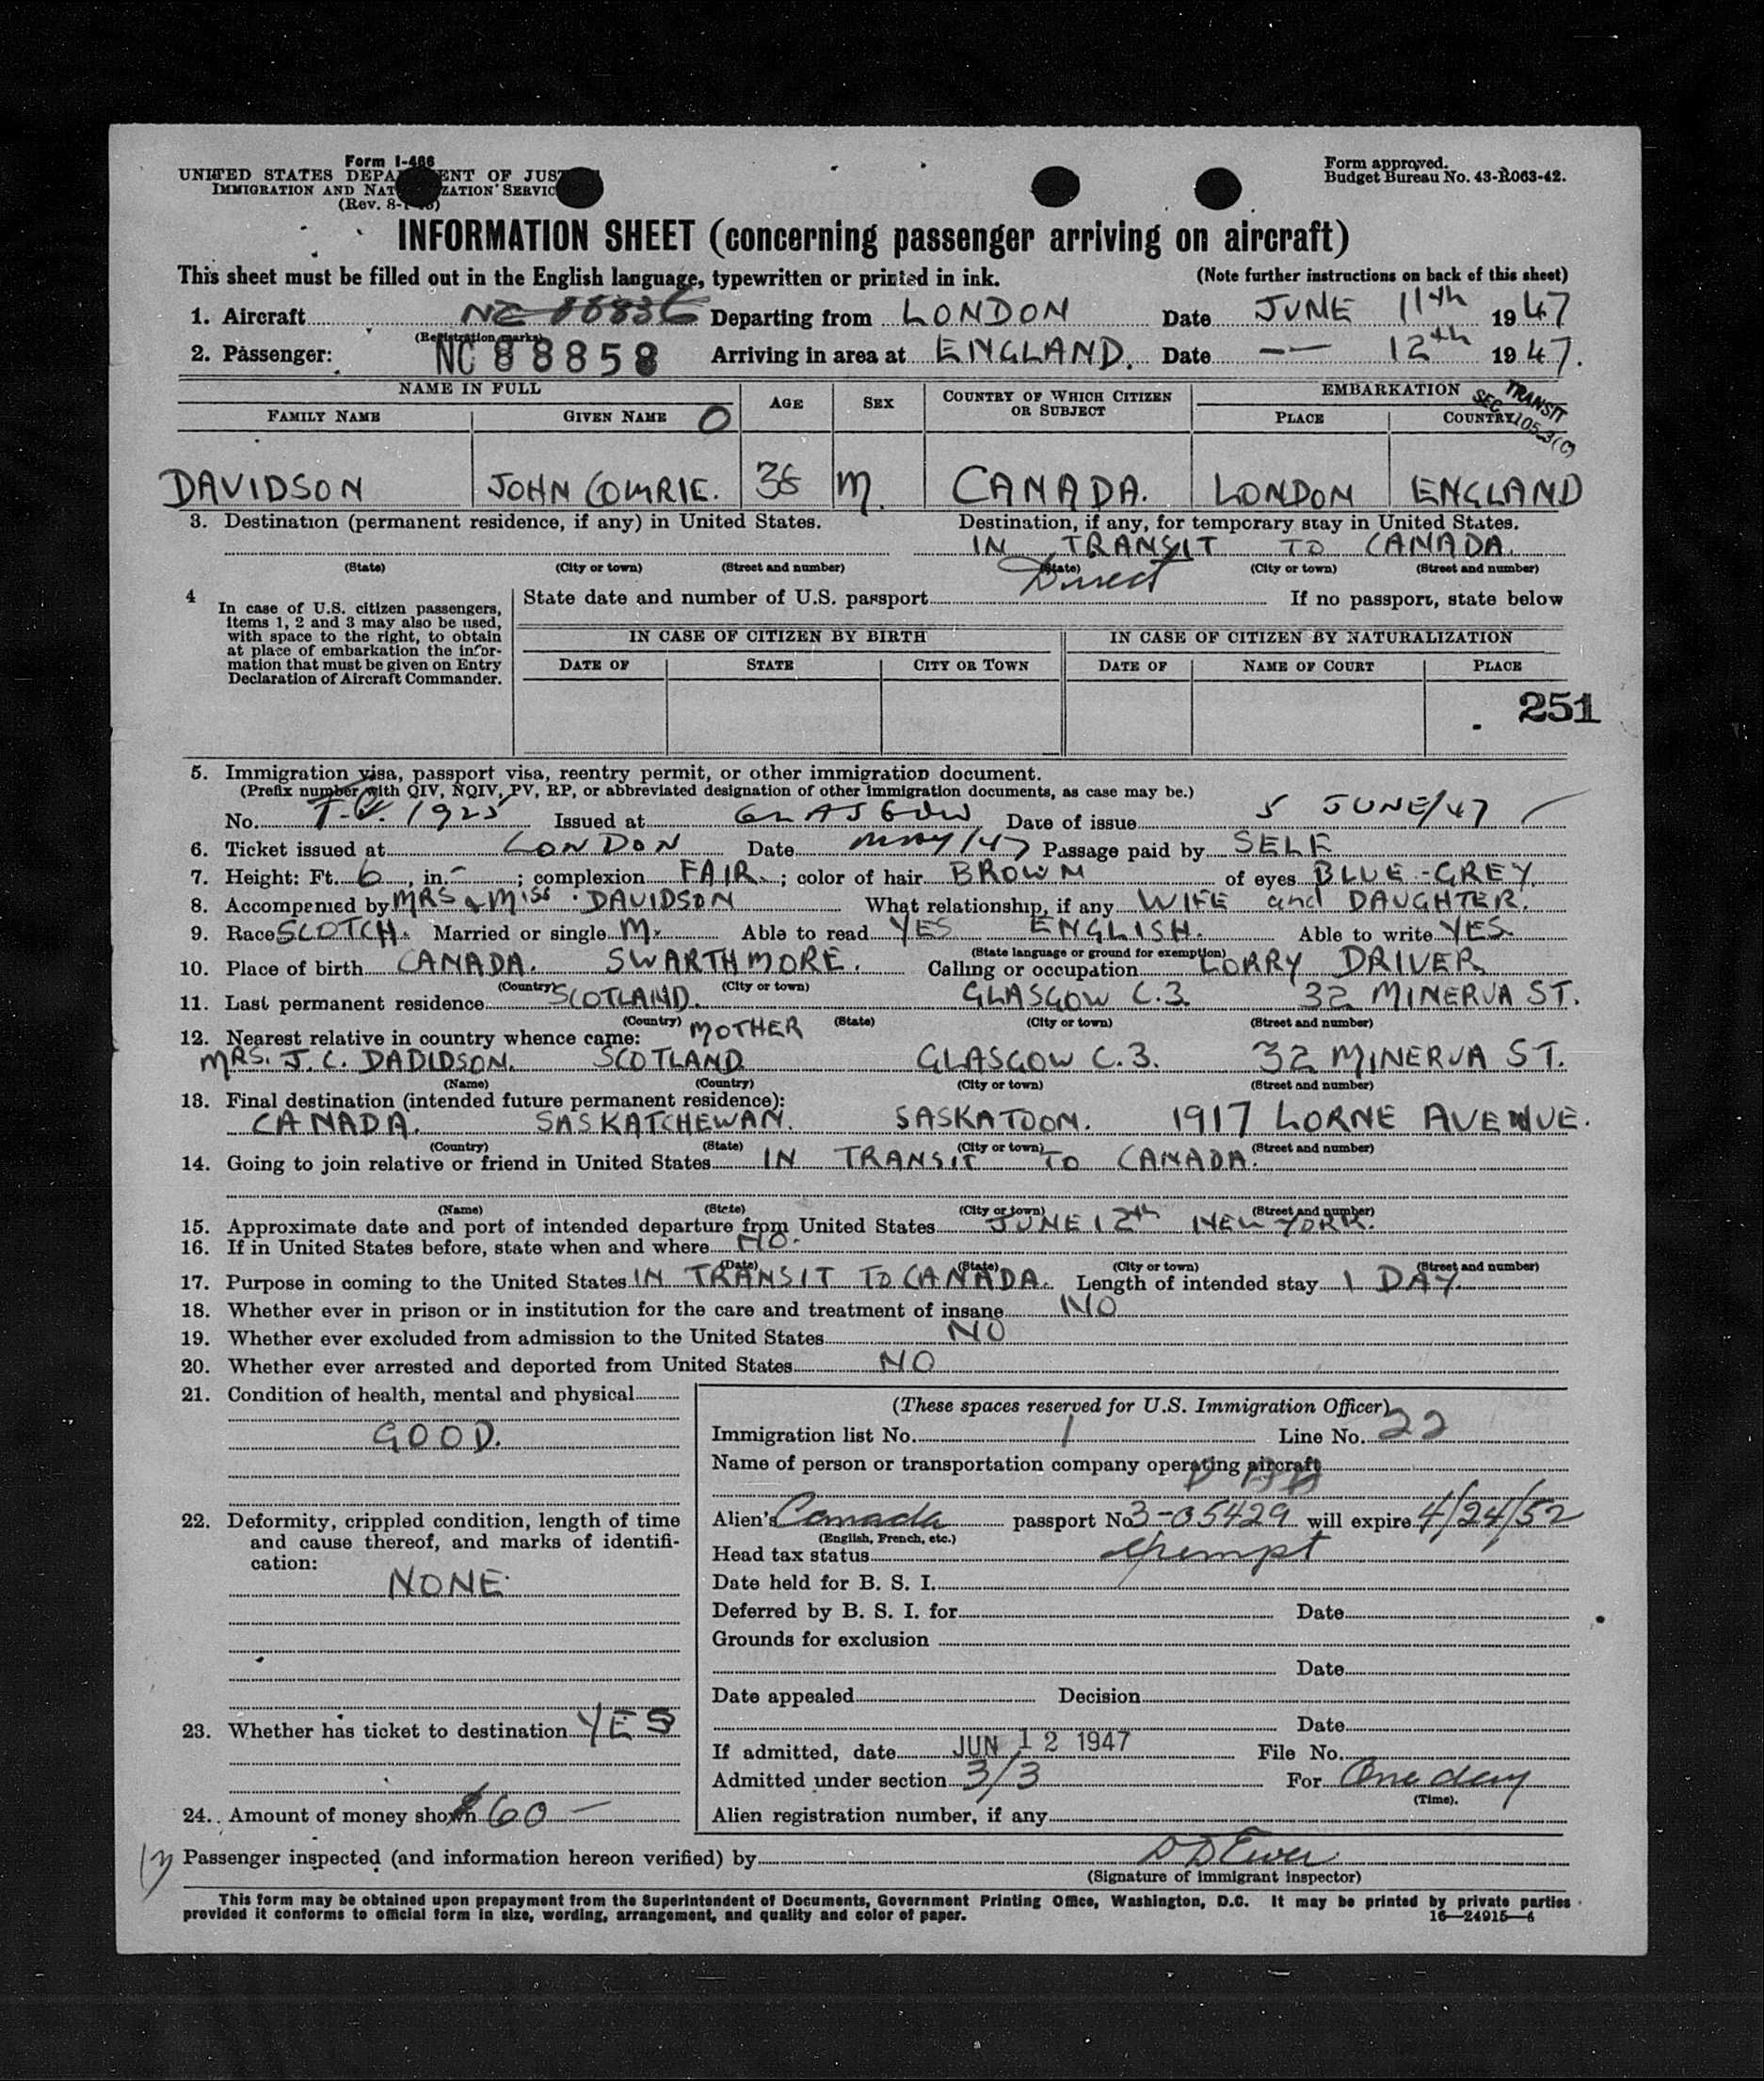 Form I-466
UNITED STATES DEPA ENT OF JUS
IMMIGRATION AND NAT ZATION SERVIC
(Rev. 8-
Form approved.
Budget Bureau No. 43-R063-42.
INFORMATION SHEET (concerning passenger arriving on aircraft)
This sheet must be filled out in the English language, typewritten or printed in ink. (Note further instructions on back of this sheet)
1. Aircraft Departing from LONDON Date JUNE 11th 1947
(Registration marks)
2. Passenger: NC 88858 Arriving in area at ENGLAND. Date -- 12th 1947.
NAME IN FULL AGE SEX COUNTRY OF WHICH CITIZEN OR SUBJECT EMBARKATION TRANSIT
FAMILY NAME GIVEN NAME O PLACE COUNTRY SEC 105-3(C)
DAVIDSON JOHN COMRIE. M. CANADA. LONDON ENGLAND
3. Destination (permanent residence, if any) in United States. Destination, if any, for temporary stay in United States.
IN TRANSIT TO CANADA.
(State) (City or town) (Street and number) (State) (City or town) (Street and number)
Direct
4 In case of U.S. citizen passengers, items 1, 2 and 3 may also be used, with space to the right, to obtain at place of embarkation the infor-mation that must be given on Entry Declaration of Aircraft Commander.
State date and number of U.S. passport If no passport, state below
IN CASE OF CITIZEN BY BIRTH IN CASE OF CITIZEN BY NATURALIZATION
DATE OF STATE CITY OR TOWN DATE OF NAME OF COURT PLACE
251
5. Immigration visa, passport visa, reentry permit, or other immigration document.
(Prefix number with QIV, NQIV, PV, RP, or abbreviated designation of other immigration documents, as case may be.)
No. 1925 Issued at GLASGOW Date of issue 5 JUNE/47
6. Ticket issued at LONDON Date MAY/47 Passage paid by SELF
7. Height: Ft. 6, in. - ; complexion FAIR. ; color of hair BROWN of eyes BLUE-GREY.
8. Accompanied by MRS & MISS DAVIDSON What relationship, if any WIFE and DAUGHTER.
9. Race SCOTCH. Married or single M. Able to read YES ENGLISH. Able to write YES.
(State language or ground for exemption)
10. Place of birth CANADA. SWARTHMORE. Calling or occupation LORRY DRIVER
(Country) (City or town)
11. Last permanent residence SCOTLAND. GLASGOW C.3. 32 MINERVA ST.
(Country) (State) (City or town) (Street and number)
12. Nearest relative in country whence came: MOTHER
MRS. J. C. DADIDSON. SCOTLAND GLASGOW C.3. 32 MINERVA ST.
(Name) (Country) (City or town) (Street and number)
13. Final destination (intended future permanent residence):
CANADA. SASKATCHEWAN. SASKATOON. 1917 LORNE AVENUE.
(Country) (State) (City or town) (Street and number)
14. Going to join relative or friend in United States IN TRANSIT TO CANADA.
(Name) (State) (City or town) (Street and number)
15. Approximate date and port of intended departure from United States JUNE 12th NEW YORK.
16. If in United States before, state when and where NO.
(Date) (State) (City or town) (Street and number)
17. Purpose in coming to the United States IN TRANSIT TO CANADA. Length of intended stay 1 DAY.
18. Whether ever in prison or in institution for the care and treatment of insane NO
19. Whether ever excluded from admission to the United States NO
20. Whether ever arrested and deported from United States NO
21. Condition of health, mental and physical
GOOD.
22. Deformity, crippled condition, length of time and cause thereof, and marks of identifi-cation:
NONE
23. Whether has ticket to destination YES
24. Amount of money shown $60 -
(These spaces reserved for U.S. Immigration Officer)
Immigration list No. 1 Line No. 22
Name of person or transportation company operating aircraft
Alien's Canada passport No. 3-05429 will expire 4/24/52
(English, French, etc.)
Head tax status exempt
Date held for B. S. I.
Deferred by B. S. I. for Date
Grounds for exclusion
Date
Date appealed Decision
Date
If admitted, date JUN 12 1947 File No.
Admitted under section 3/3 For One day
(Time).
Alien registration number, if any
Passenger inspected (and information hereon verified) by
(Signature of immigrant inspector)
This form may be obtained upon prepayment from the Superintendent of Documents, Government Printing Office, Washington, D.C. It may be printed by private parties
provided it conforms to official form in size, wording, arrangement, and quality and color of paper. 16—24915-4